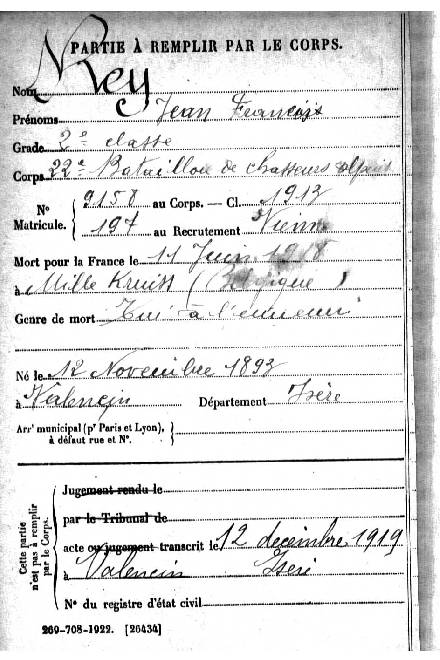 PARTIE À REMPLIR PAR LE CORPS.
Nom Rey
Prénoms Jean François
Grade 2e classe
Corps 22e Bataillon de chasseurs alpins
N° Matricule. { 9158 au Corps. — Cl. 1913
197 au Recrutement Vienne
Mort pour la France le 11 Juin 1918
à Mille Kruiss (Belgique)
Genre de mort Tué à l'ennemi
Né le 12 Novembre 1893
à Valencin Département Isère
Arrt municipal (pr Paris et Lyon), à défaut rue et N°. }
Cette partie n'est pas à remplir par le Corps.
Jugement rendu le
par le Tribunal de
acte ou jugement transcrit le 12 décembre 1919
à Valencin Isère
N° du registre d'état civil
269-708-1922. [26434]